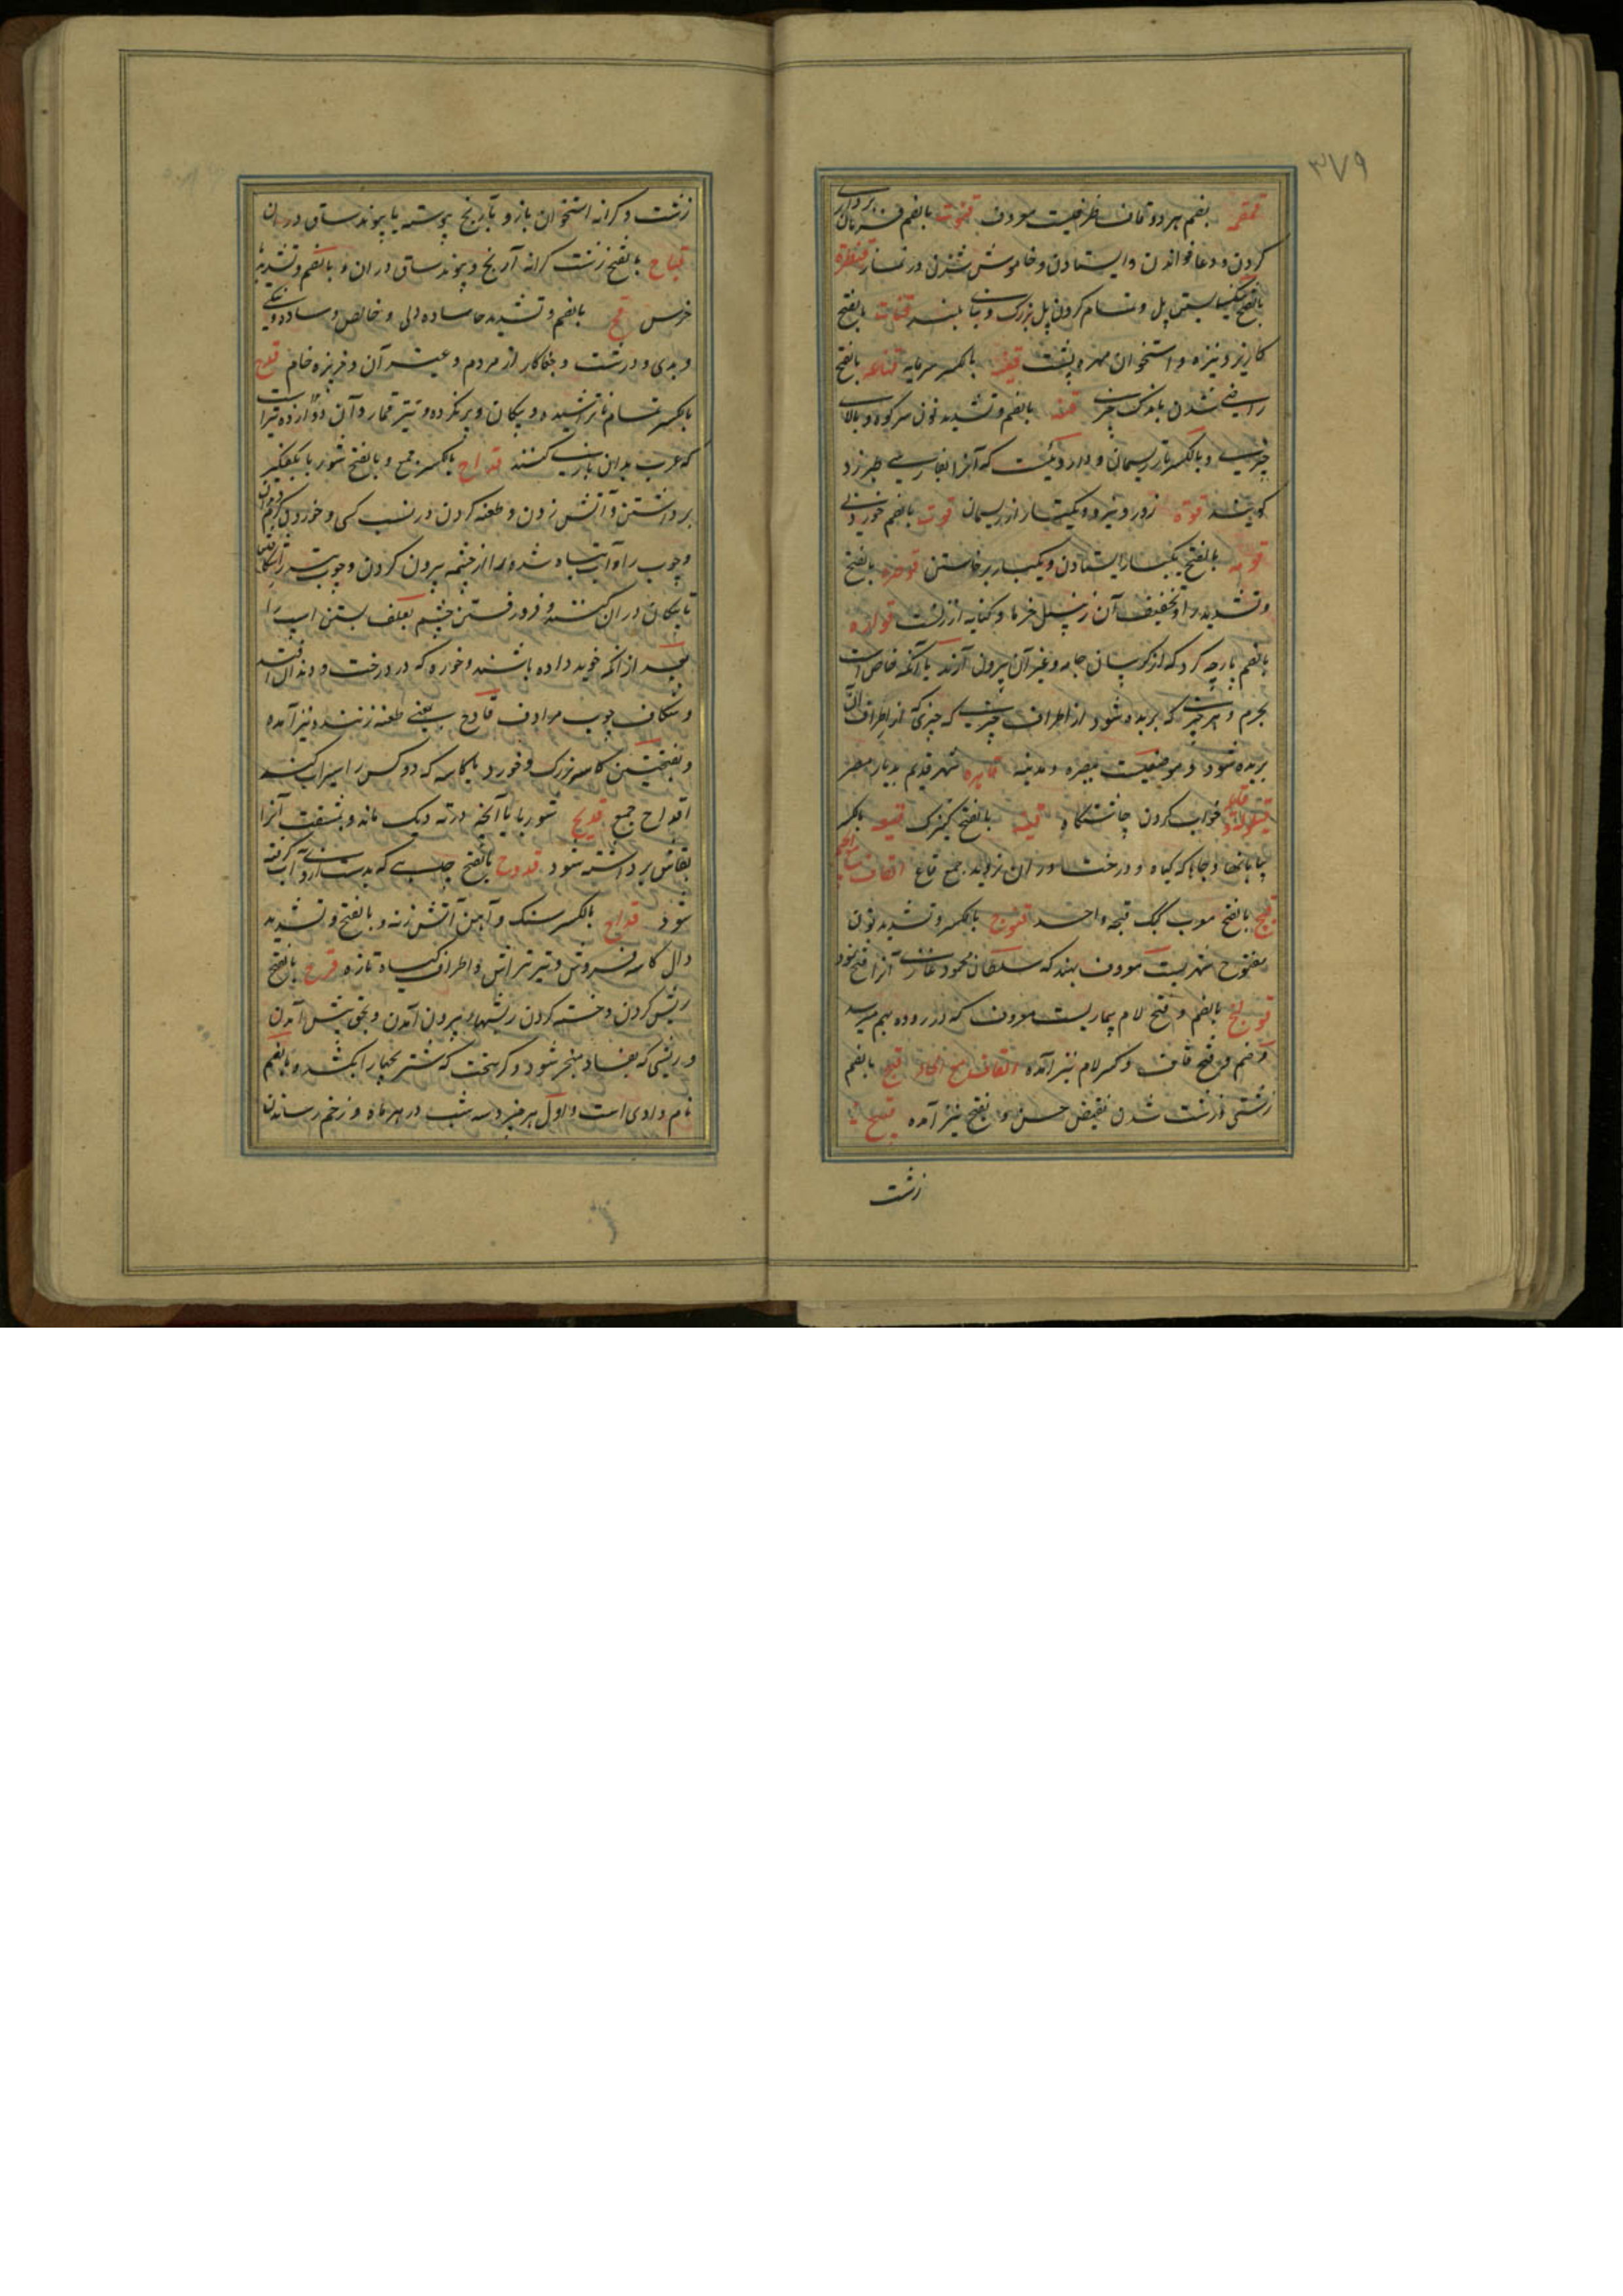 ۳۷۹
قمقمه بضم هر دو قاف ظرفیست معروف قنوت بالضم فرمان برداری
کردن و دعا خواندن و ایستادن و خاموش شدن در نماز قنطره
بالفتح پل و تمام کردن پل بزرگ و بنای بلند قنات بالفتح
کاریز و نیزه و استخوان مهره پشت قنیه بالکسر سرمایه قناعه بالفتح
راضی شدن باندک چیزی قنه بالضم و تشدید نون سر کوه و بالای
چیزی و بالکسر تار ریسمان و داروئیست که آنرا بفارسی بیرزد
کویند قوه زور و نیرو و یکتار از ریسمان قوت بالضم خوردنی
قومه بالفتح یکبار ایستادن و یکبار برخاستن قوصره بالفتح
و تشدید را و تخفیف آن زنبیل خرما و کنایه از زنست قواره
بالضم پارچه کرد که از کریبان جامه و غیر آن بیرون آرند یا آنکه خاص است
بچرم و هر چیزی که بریده شود از اطراف چیزی که چیزی از اطراف آن
بریده شود و موضعیست ببصره و مدینه قاهره شهر قدیم بدیار مصر
قیلوله خواب کردن چاشتگاه قینه بالفتح کنیزک قیعه بالکسر
بیابانها و جاها که کیاه و درخت در ان نروید جمع قاع القاف مع الجیم
قبج بالفتح معرب کبک قبجه واحد قنوج بالکسر و تشدید نون
مفتوح شهریست معروف بهند که سلطان محمود غازی آنرا فتح نمود
قولنج بالضم و فتح لام بیماریست معروف که در روده بهم میرسد
و ضم و فتح قاف و کسر لام نیز آمده القاف مع الحاء قبح بالضم
زشتی و زشت شدن نقیض حسن و بفتح نیز آمده قبیح
زشت
زشت و کرانه استخوان بازو بآرنج پیوسته یا پیوند ساق در ران
قباح بالفتح زشت کرانه آرنج و پیوند ساق در ران و بالضم و تشدید با
خرس قح بالضم و تشدید حا ساده دلی و خالص و ساده و نیکی
و بدی و درشت و جفاکار از مردم و غیر آن و خربزه خام قدح
بالکسر تمام ناتراشیده و پیکان و پر نکرده و تیر قمار و آن دوازده تیر است
که عرب بدان بازی کنند قداح بالکسر جمع و بالفتح شوربا بکفکیر
برداشتن و آتش زدن و طعنه کردن در نسب کسی و خوردن کرم
چوب را و آب تباه شده را از چشمه بیرون کردن و چوب تیر
تا پیکان در ان کنند و فرو رفتن چشم بعلف بستن اسپ را
بعد از آنکه خوید داده باشند و خوره که در درخت و دندان افتد
و شکاف چوب مرادف قادح بمعنی طعنه زننده نیز آمده
و بفتحتین کاسه بزرک و خورد یا کاسه که دو کس را سیراب کند
اقداح جمع قدیح شوربا یا آنچه در ته دیک ماند و بمشقت آنرا
بقاشق برداشته شود قدوح بالفتح چاهی که بدست ازو آب گرفته
شود قداح بالکسر سنک و آهن آتش زنه و بالفتح و تشدید
دال کاسه فروش و تیرتراش و اطراف کیاه تازه قرح بالفتح
ریش کردن و خسته کردن ریشها بیرون آمدن و بحق پیش آمدن
و ریشی که بفساد منجر شود و کر سخت که شتر بچها را بکشد و بالضم
نام وادی است و اول هر چیز و سه شب در هر ماه و زخم رساندن